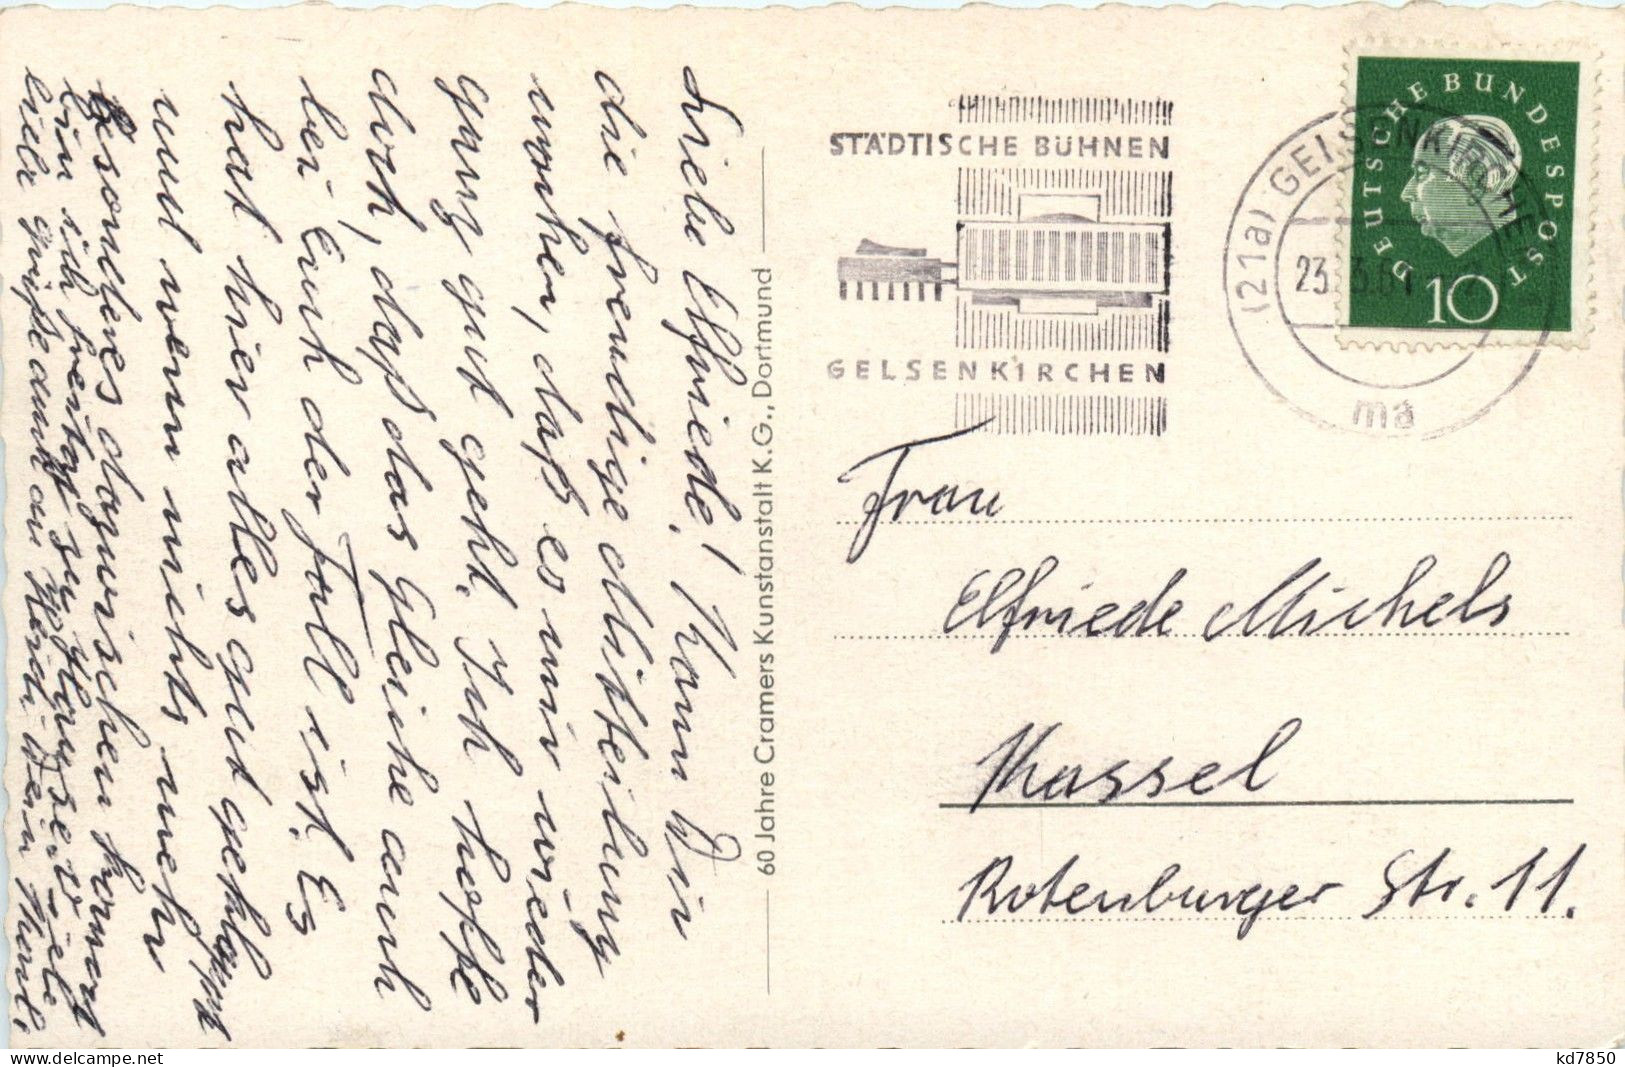 Liebe Elfriede! Kann Dir
die freudige Mitteilung
machen, daß es mir wieder
ganz gut geht. Ich hoffe
doch, daß das Gleiche auch
bei Euch der Fall ist. Es
hat hier alles gut geklappt
und wenn nichts mehr
besonderes dazwischen kommt
bin ich freitag zu Hause. Viele
liebe Grüße auch an Heidi Dein
60 Jahre Cramers Kunstanstalt K.G., Dortmund
STÄDTISCHE BÜHNEN
GELSENKIRCHEN
(21a) GELSENKIRCHEN
23. 3.61
ma
DEUTSCHE BUNDESPOST
10
Frau
Elfriede Michels
Kassel
Rotenburger Str. 11.
delcampe.net
kd7850